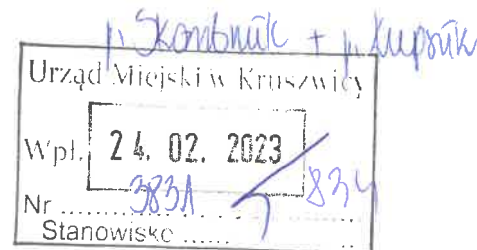 p. Skonbnik + p. Kupsik
Urząd Miejski w Kruszwicy
Wpł. 24. 02. 2023
Nr ....3831........ 834
Stanowisko ......